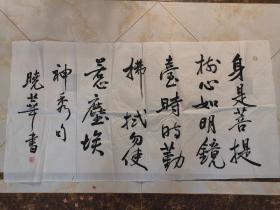 身是菩提
樹心如明鏡
臺時時勤
拂拭勿使
惹塵埃
神秀句
曉華書